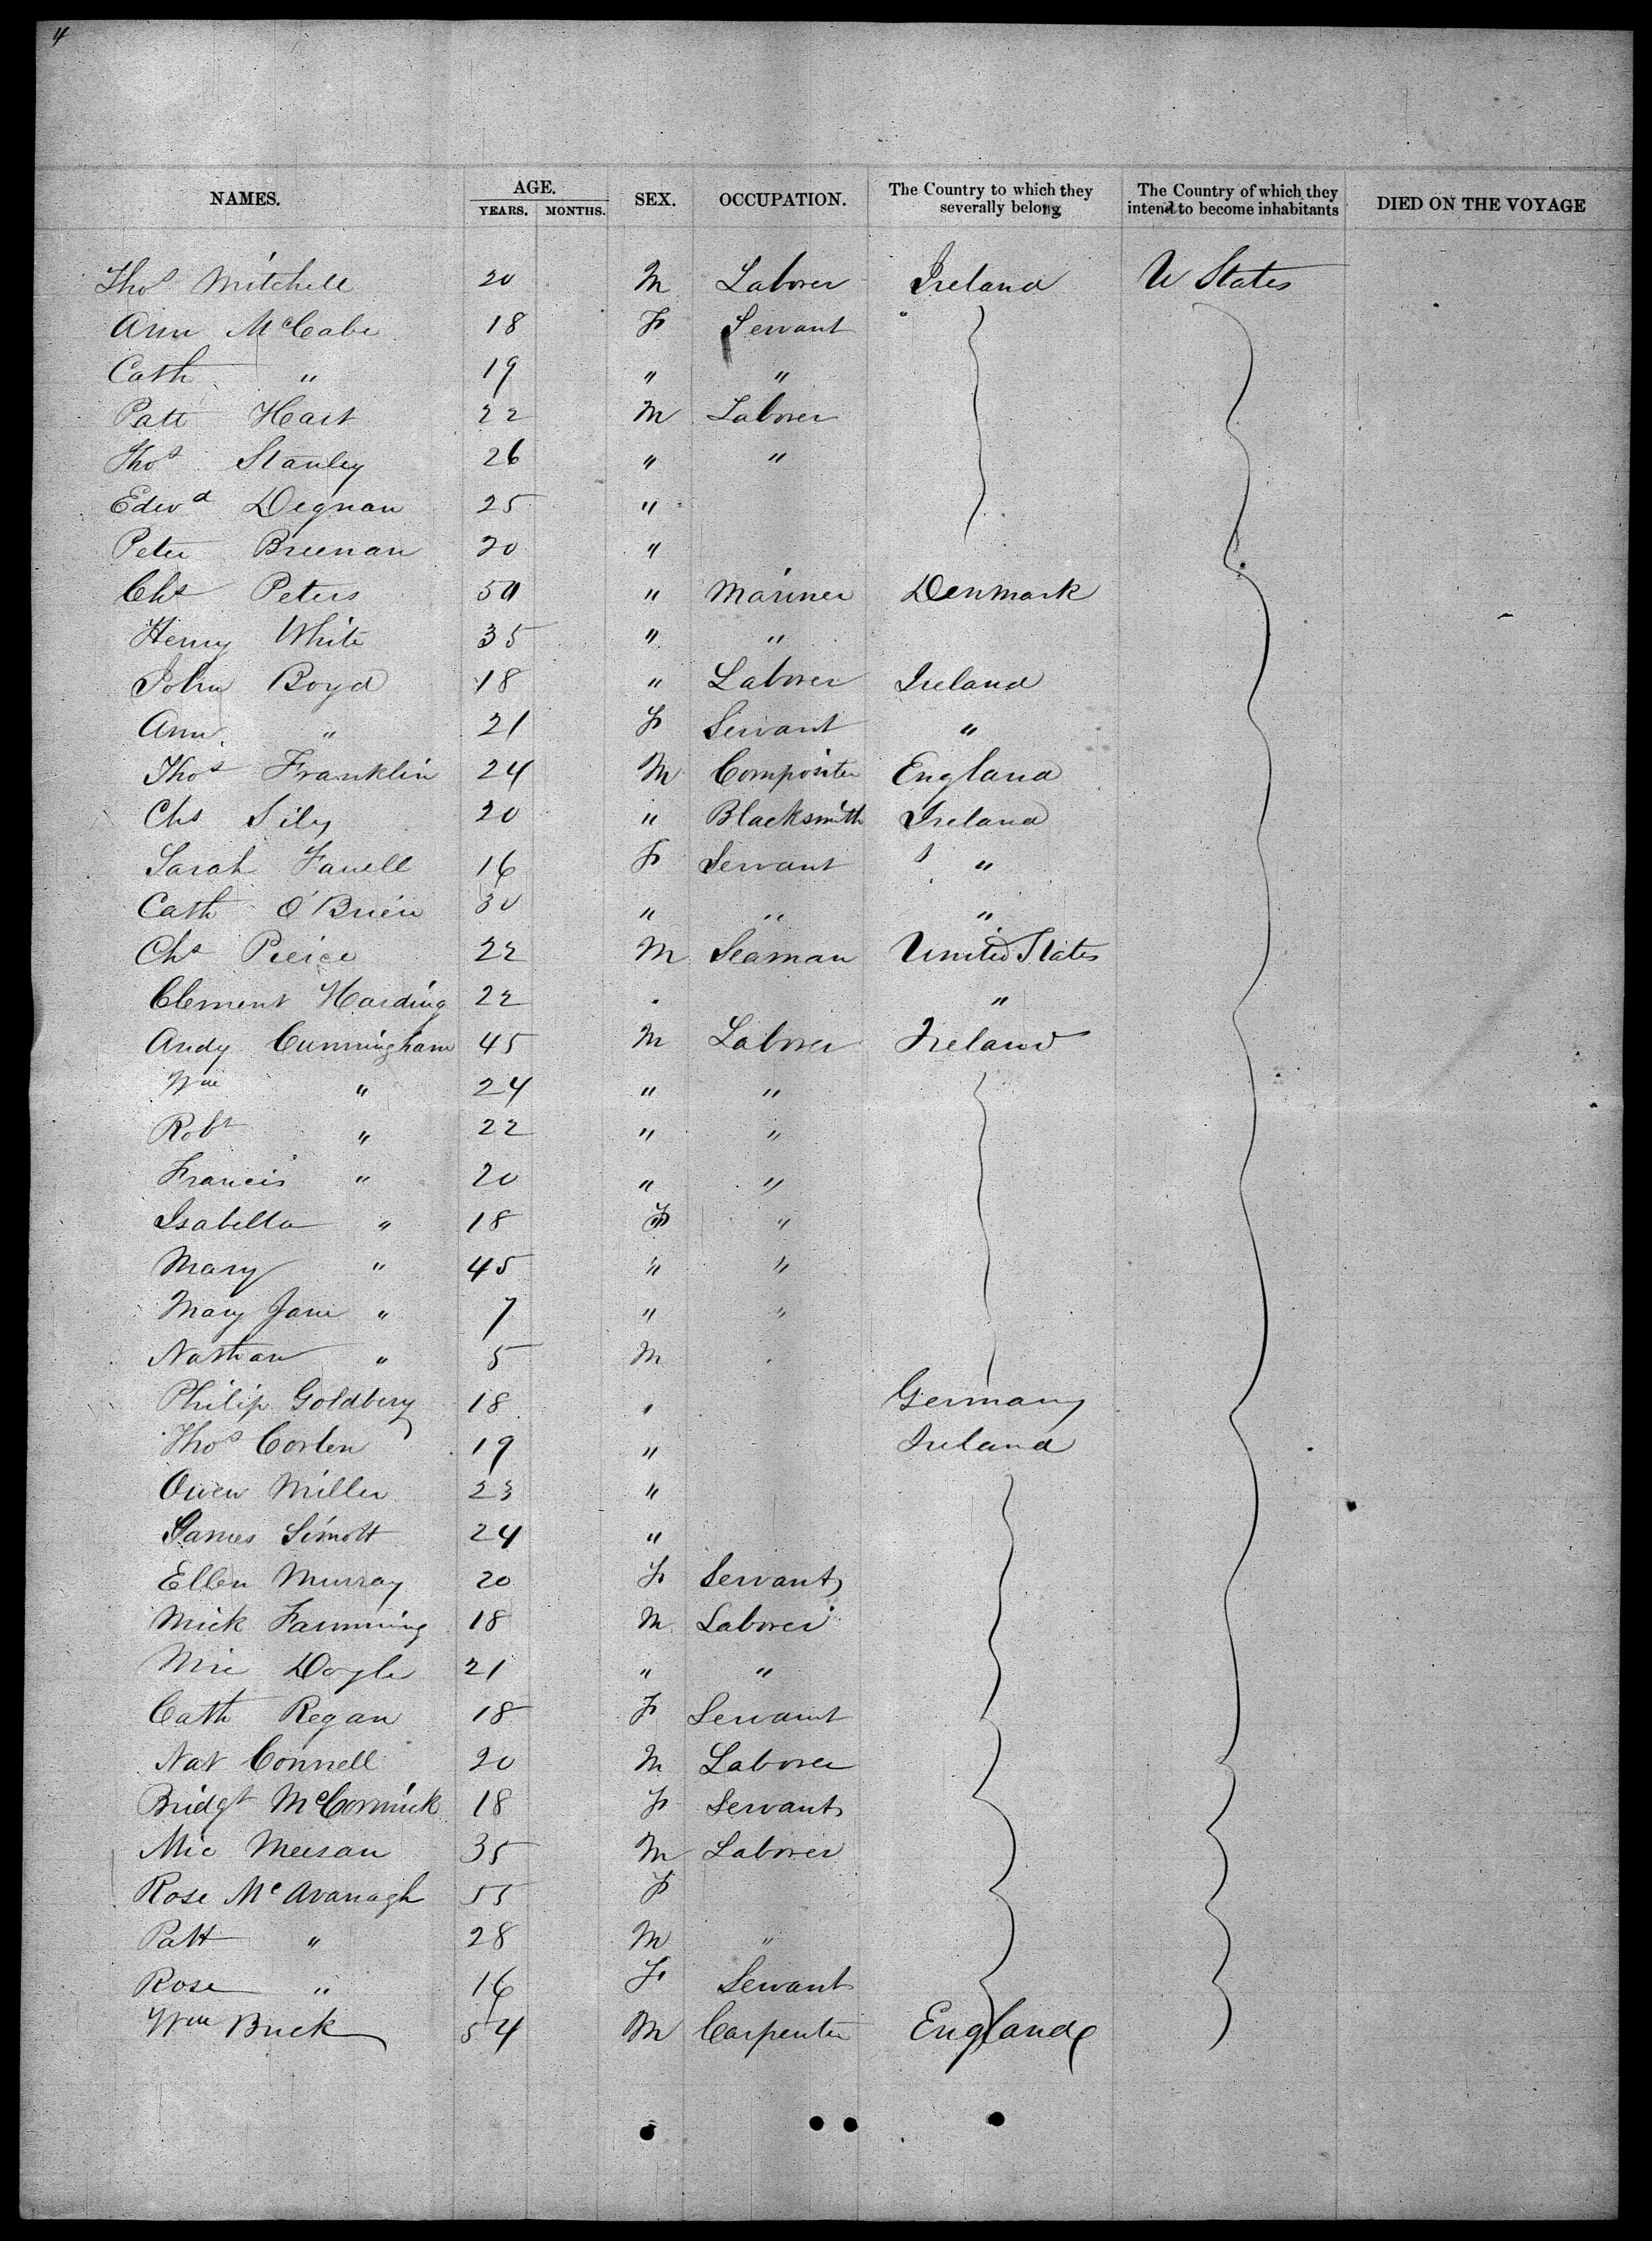 4
NAMES. AGE. YEARS. MONTHS. SEX. OCCUPATION. The Country to which they severally belong The Country of which they intend to become inhabitants DIED ON THE VOYAGE
Thos Mitchell 20 M Laborer Ireland U States
Ann McCabe 18 F Servant "
Cath " 19 " "
Patt Hart 22 M Laborer
Thos Stanley 26 " "
Edwd Degnan 25 "
Peter Breenan 20 "
Chs Peters 50 " Mariner Denmark
Henry White 35 " "
John Boyd 18 " Laborer Ireland
Ann " 21 F Servant "
Thos Franklin 24 M Compositer England
Chs Sily 20 " Blacksmith Ireland
Sarah Farrell 16 F Servant "
Cath O'Brien 30 " " "
Chs Peirce 22 M Seaman United States
Clement Harding 22 "
Andy Cunningham 45 M Laborer Ireland
Wm " 24 " "
Robt " 22 " "
Francis " 20 " "
Isabella " 18 F "
Mary " 45 " "
Mary Jane " 7 " "
Nathan " 5 M
Philip Goldberg 18 " Germany
Thos Corten 19 " Ireland
Owen Miller 23 "
James Sinott 24 "
Ellen Murray 20 F Servant
Mick Fanning 18 M Laborer
Mic Doyle 21 " "
Cath Regan 18 F Servant
Nat Connell 20 M Laborer
Bridgt McCormick 18 F Servant
Mic Meesan 35 M Laborer
Rose McAvanagh 55 F
Patt " 28 M "
Rose " 16 F Servant
Wm Buck 54 M Carpenter England